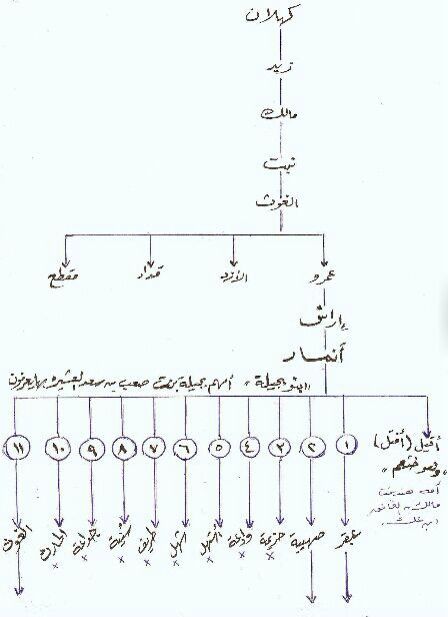 كهلان
زيد
مالك
نبت
الغوث
عمرو الأزد قدار مقطع
إراش
أنمار
"بنو بجيلة" أمهم بجيلة بنت صعب بن سعد العشيرة بها يعرفون
أفيل (أفتل)
١ ٢ ٣ ٤ ٥ ٦ ٧ ٨ ٩ ١٠ ١١
أمه هند بنت
مالك بن الغافق
بن عك
عبقر صهيبة خزيمة وداعة أشهل شهل طريف سنية جداعة الحارث الغوث
× × × × × × × ×